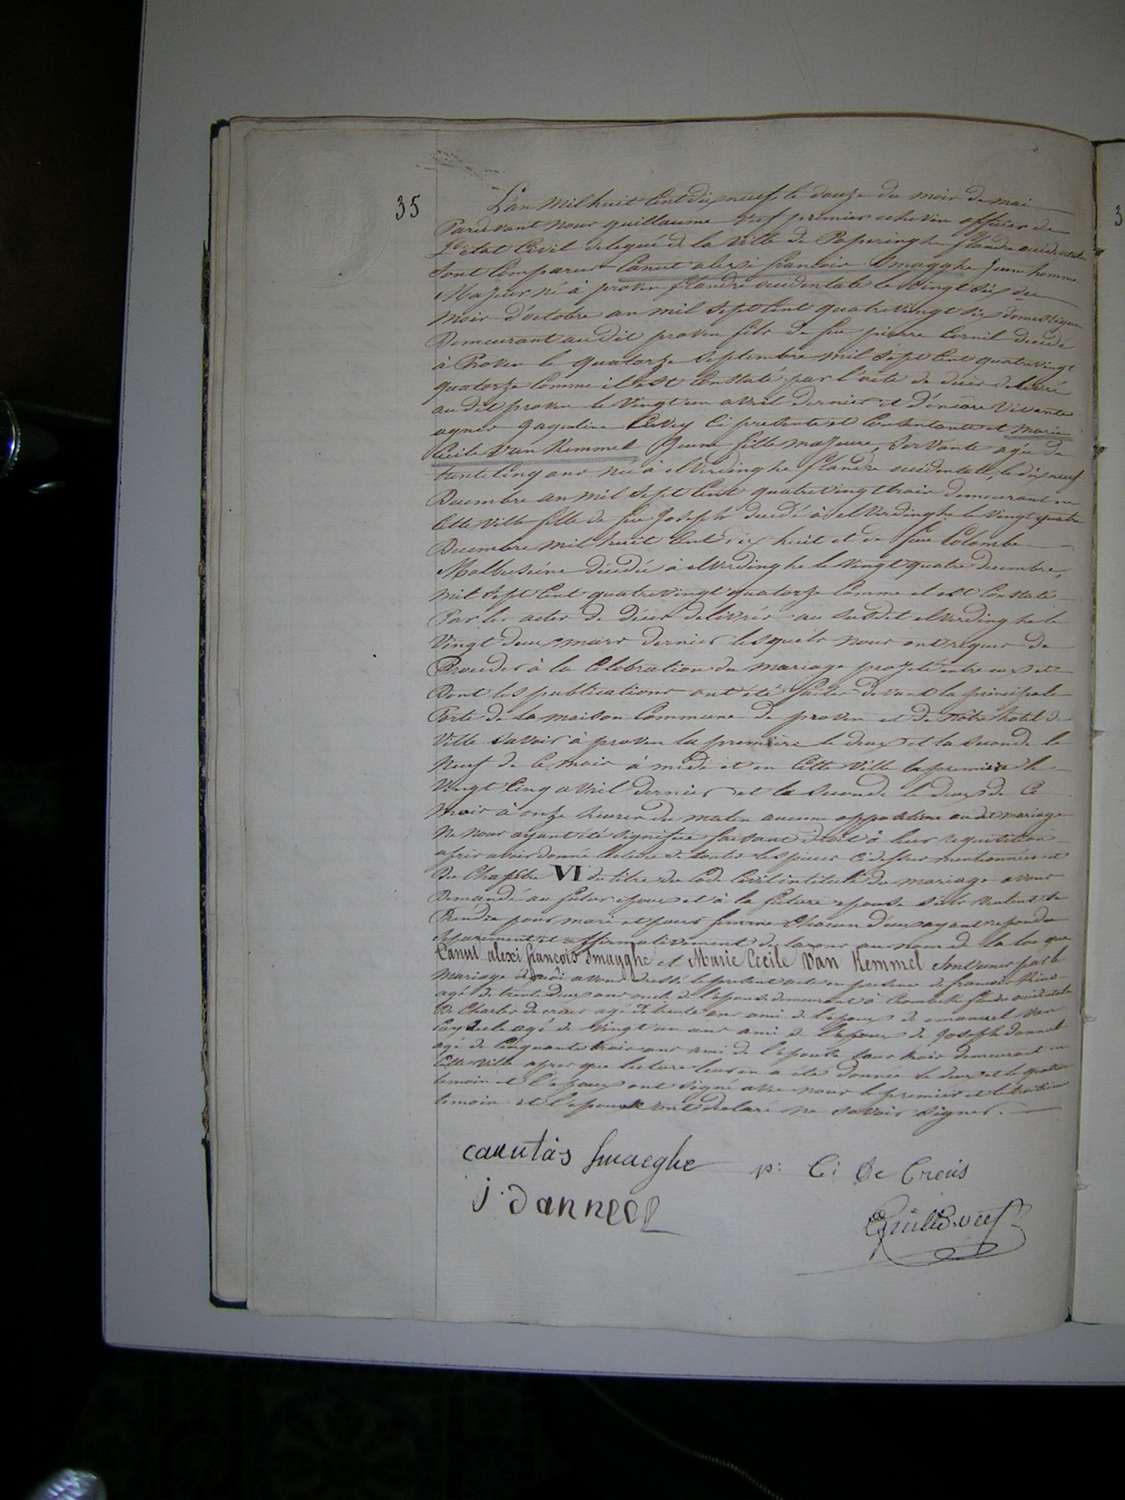 35
L'an Mil huit Cent dix neuf le douze du mois de mai
Pardevant nous guillaume premier echevin officier de
L'etat Civil delegué de la Ville de Poperinghe flandre occidentale
Sont Comparus Canut alexi francois Smagghe jeune homme
Majeur né à proven flandre occidentale le Vingt six du
mois d'octobre an mil sept Cent quatre vingt six domestique
Demeurant au dit proven fils de feu pierre Cornil decidé
à Proven le quatorze Septembre mil sept Cent quatre vingt
quatorze Comme il est Constaté par l'acte de deces delivré
au dit proven le Vingt un avril dernier et d'encore Vivante
agnes jaqueline Ci presente et Consentante et Marie
Cecile Van Kemmel jeune fille majeure, Servante agée de
trente Cinq ans née à elverdinghe flandre occidentale, le dix neuf
Decembre an mil sept Cent quatre vingt trois demeurant en
Cette Ville fille de feu Joseph decidé à elverdinghe le Vingt quatre
Decembre mil huit Cent dix huit et de feue Colombe
decidée à elverdinghe le Vingt quatre decembre,
mil sept Cent quatre vingt quatorze Comme il est Constaté
Par les actes de deces delivrés au susdit elverdinghe le
Vingt deux mars dernier lesquels nous ont requis de
Proceder à la Celebration du mariage projetté entre eux et
Dont les publications ont été faites devant la principale
Porte de la maison Commune de proven et de notre hotel de
Ville savoir à proven la première le deux et la seconde le
Neuf de Ce mois à midi et en Cette Ville la première le
Vingt Cinq avril dernier et la seconde le deux de Ce
Mois à onze heures du matin aucune opposition au dit mariage
Ne nous ayant été signifiée faisant droit à leur requisition
apres avoir donné lecture de toutes les pieces Ci dessus mentionnées et
Du Chapitre VI du titre du Code Civil intitulé du mariage avons
Demandé au futur epoux et à la future epouse s'ils veulent se
Prendre pour mari et pour femme Chacun d'eux ayant repondu
Separement et affirmativement declarons au nom de la loi que
Canut alexi françois Smagghe et Marie Cecile Van Kemmel sont unis par le
Mariage de quoi avons dressé le present acte en presence de francois
agé de trente deux ans oncle de l'epouse demeurant à flandre occidentale
De Charles de agé de trente ans ami de l'epoux de emanuel Van
agé de Vingt un ans ami de l'epoux de Joseph dannel
agé de Cinquante trois ans ami de l'epouse tous trois demeurant en
Cette Ville apres que lecture leur en a été donnée le deux et le quatre
temoin et l'epoux ont signé avec nous le premier et le troisieme
temoin et l'epouse ont declaré ne savoir signer.
canutus smaeghe p: C: De Creus
j. danneel